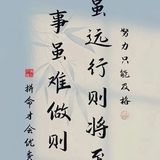 努力只能及格
虽远行则将至
事虽难做则
拼命才会优秀